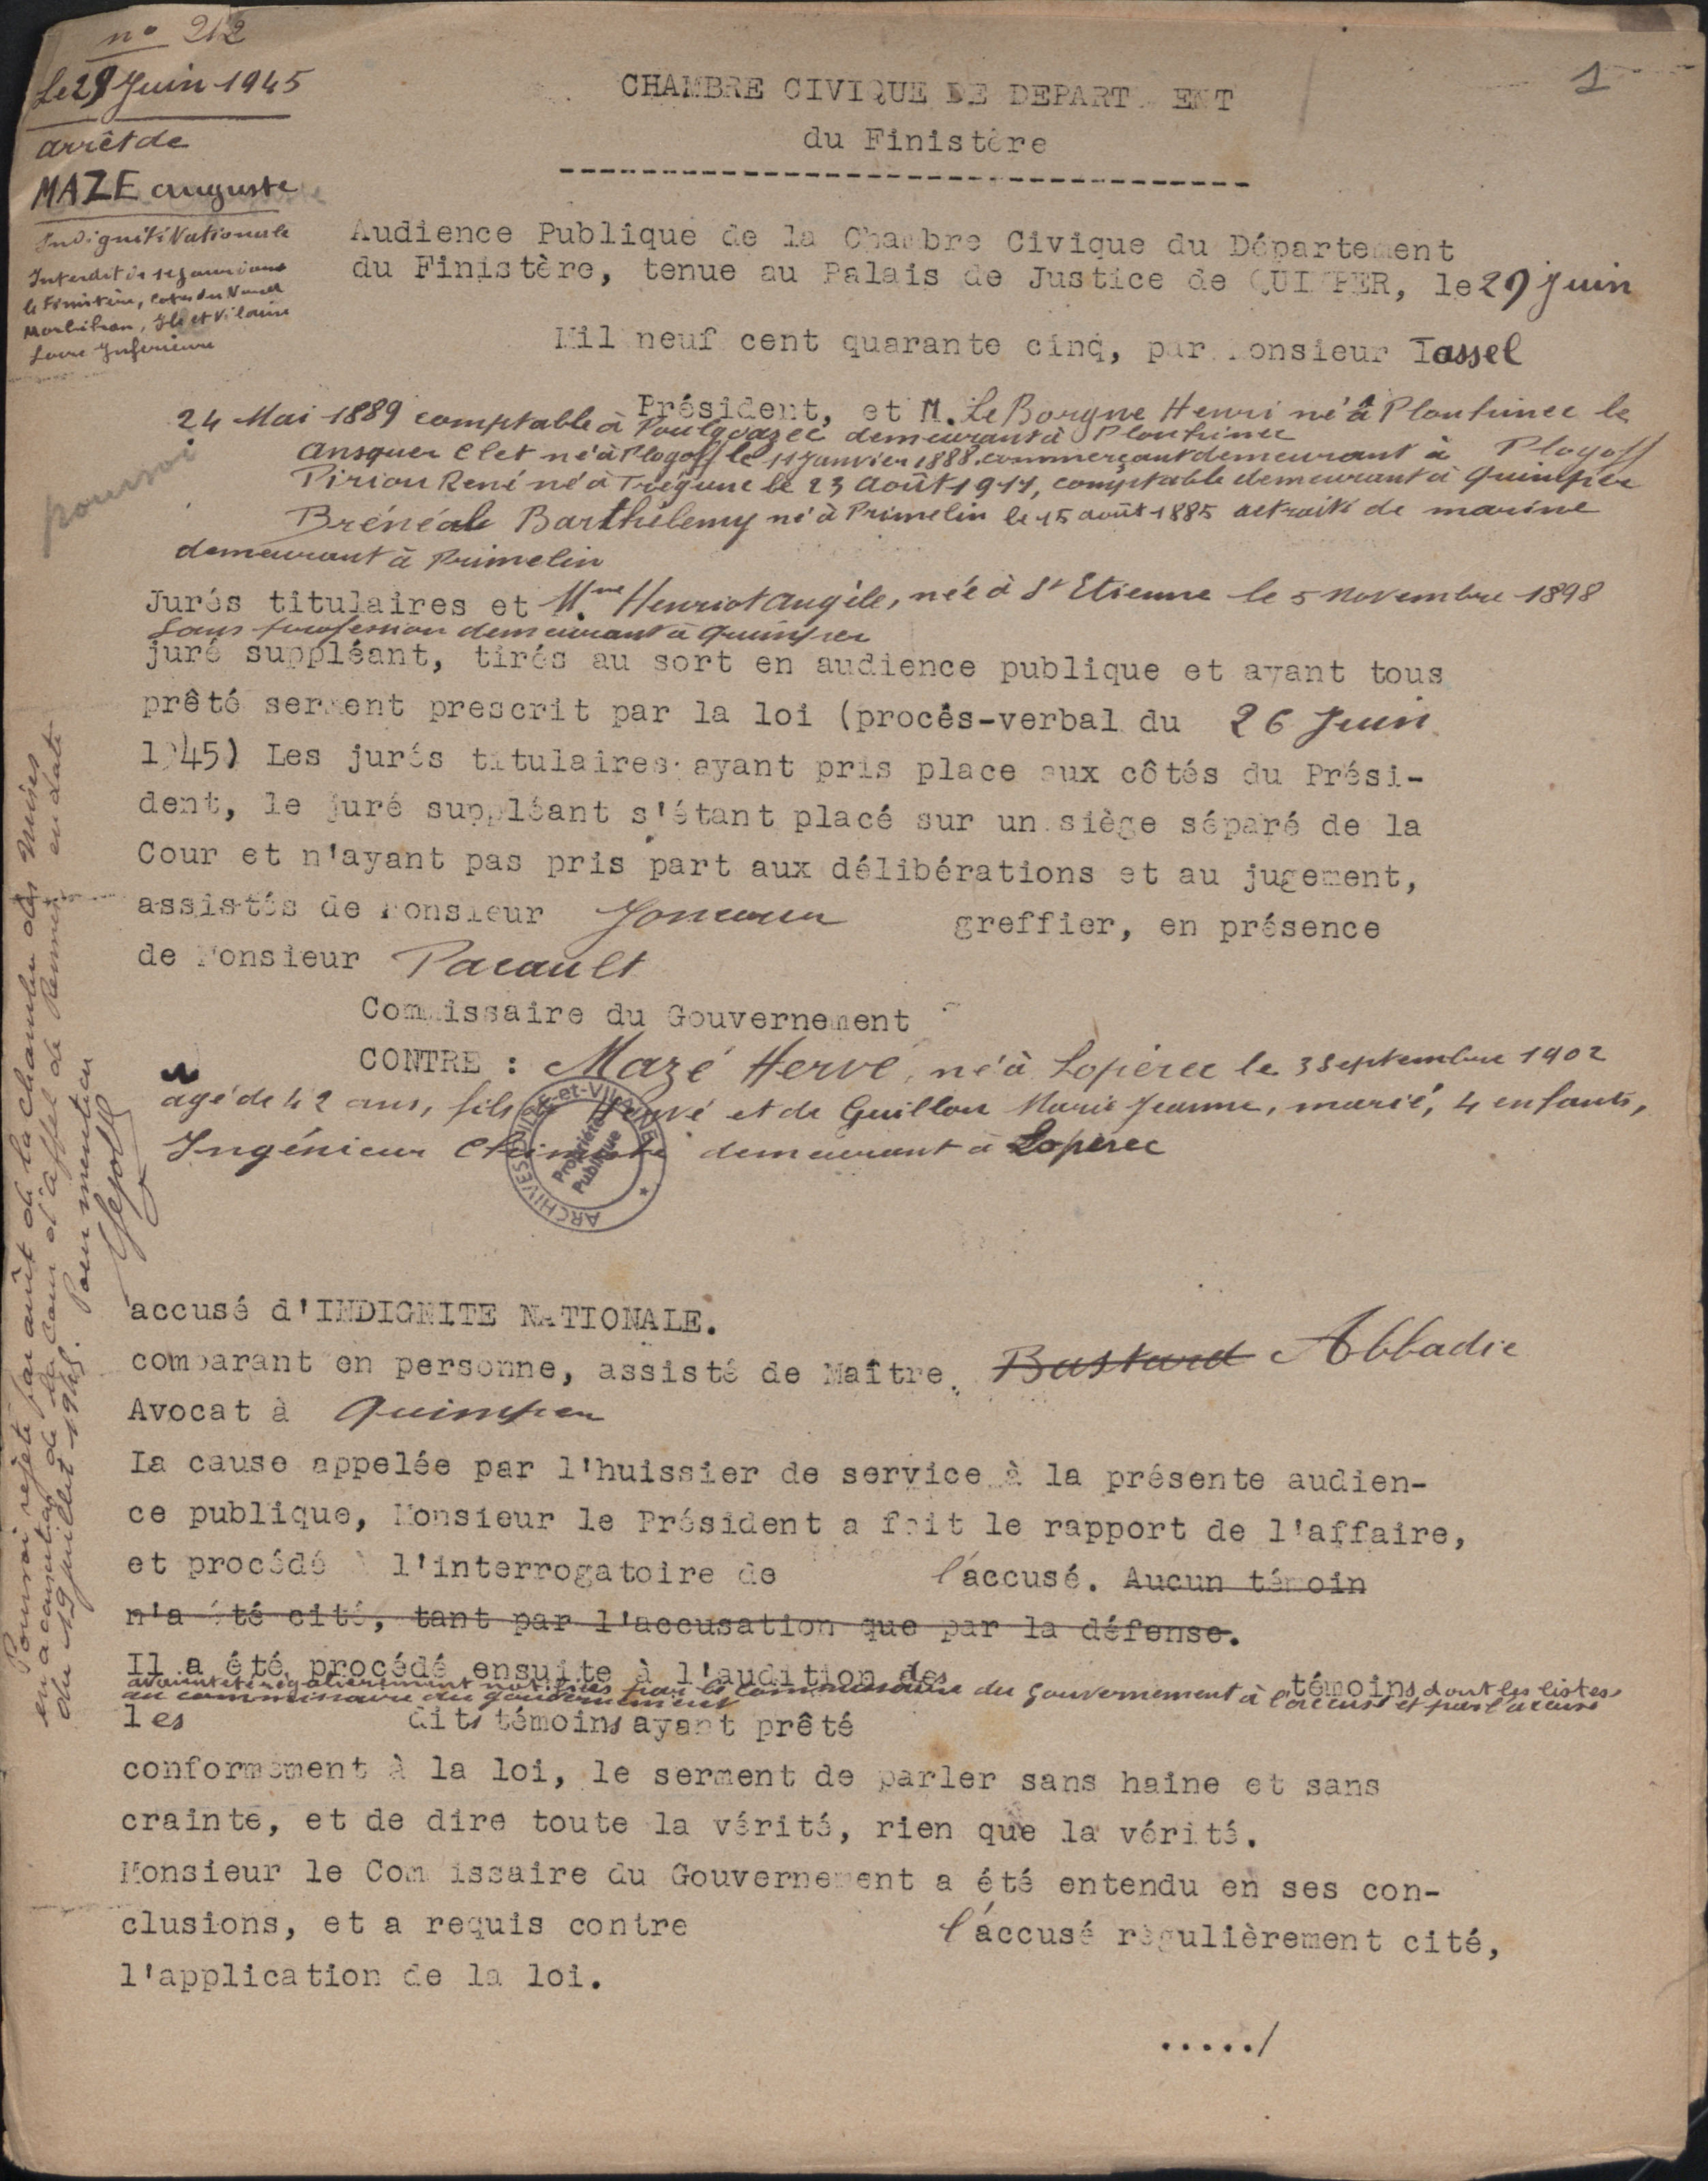 n° 212
Le 29 Juin 1945
arrêt de
MAZE auguste
Indignité Nationale
Interdit de séjour dans
le Finistère, Cotes du Nord
Morbihan, Ile et Vilaine
Loire Inférieure
pourvoi
1
CHAMBRE CIVIQUE DE DEPART ENT
du Finistère
Audience Publique de la Chambre Civique du Département
du Finistère, tenue au Palais de Justice de QUIMPER, le 29 juin
Mil neuf cent quarante cinq, par Monsieur Tassel
Président, et M. Le Borgne Henri né à Plouhinec le
24 Mai 1889 comptable à Poulgoazec demeurant à Plouhinec
Ansquer Clet né à Plogoff le 11 Janvier 1888, commerçant demeurant à Plogoff
Piriou René né à Trégunc le 23 Août 1911, comptable demeurant à Quimper
Brénéol Barthélemy né à Primelin le 15 août 1885 retraité de marine
demeurant à Primelin
Jurés titulaires et Mme Henriot Angèle, née à St Etienne le 5 Novembre 1898
Sans profession demeurant à Quimper
juré suppléant, tirés au sort en audience publique et ayant tous
prêté serment prescrit par la loi (procès-verbal du 26 Juin
1945) Les jurés titulaires ayant pris place aux côtés du Prési-
dent, le juré suppléant s'étant placé sur un siège séparé de la
Cour et n'ayant pas pris part aux délibérations et au jugement,
assistés de Monsieur greffier, en présence
de Monsieur Pacault
Commissaire du Gouvernement
CONTRE : Mazé Hervé, né à Lopérec le 3 Septembre 1902
agé de 42 ans, fils de Hervé et de Guillou Marie Jeanne, marié, 4 enfants,
Ingénieur Chimiste demeurant à Lopérec
ARCHIVES D'ILLE-et-VILAINE
Propriété
Publique
accusé d'INDIGNITE NATIONALE.
comparant en personne, assisté de Maître. Bastard Abbadie
Avocat à Quimper
La cause appelée par l'huissier de service à la présente audien-
ce publique, Monsieur le Président a fait le rapport de l'affaire,
et procédé à l'interrogatoire de l'accusé. Aucun témoin
n'a été cité, tant par l'accusation que par la défense.
Il a été procédé ensuite à l'audition des témoins dont les listes
avaient été régulièrement notifiées par le commissaire du Gouvernement à l'accusé et par l'accusé
au commissaire du gouvernement
les dits témoins ayant prêté
conformément à la loi, le serment de parler sans haine et sans
crainte, et de dire toute la vérité, rien que la vérité.
Monsieur le Com issaire du Gouvernement a été entendu en ses con-
clusions, et a requis contre l'accusé régulièrement cité,
l'application de la loi.
...../
Pourvoi rejeté par arrêt de la chambre des Mises
en accusation de la Cour d'appel de Rennes en date
du 19 juillet 1945. Pour mention